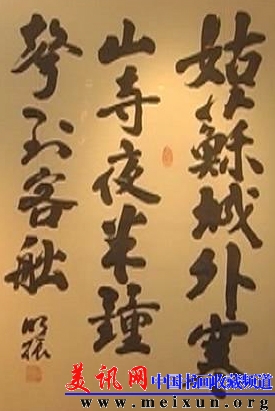 姑蘇城外寒
山寺夜半鐘
聲到客船
明振
美讯网 中国书画收藏频道
www.meixun.org